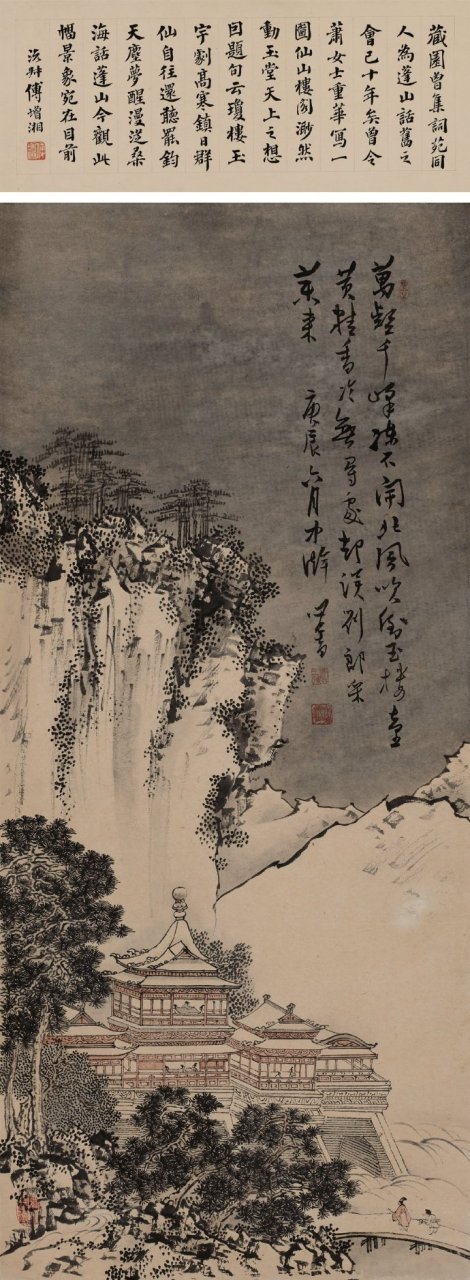 藏園曾集詞苑同
人為蓬山話舊之
會已十年矣曾令
蕭女士重華寫一
圖仙山樓閣渺然
動玉堂天上之想
囙題句云瓊樓玉
宇劇高寒鎮日群
仙自往還聽罷鈞
天塵夢醒漫從桑
海話蓬山今觀此
幅景象宛在目前
沅叔傅增湘
萬壑千峰不開北風吹玉樓臺
黃精香冷無尋處却誤劉郎采
藥來 庚辰六月中澣 心畬